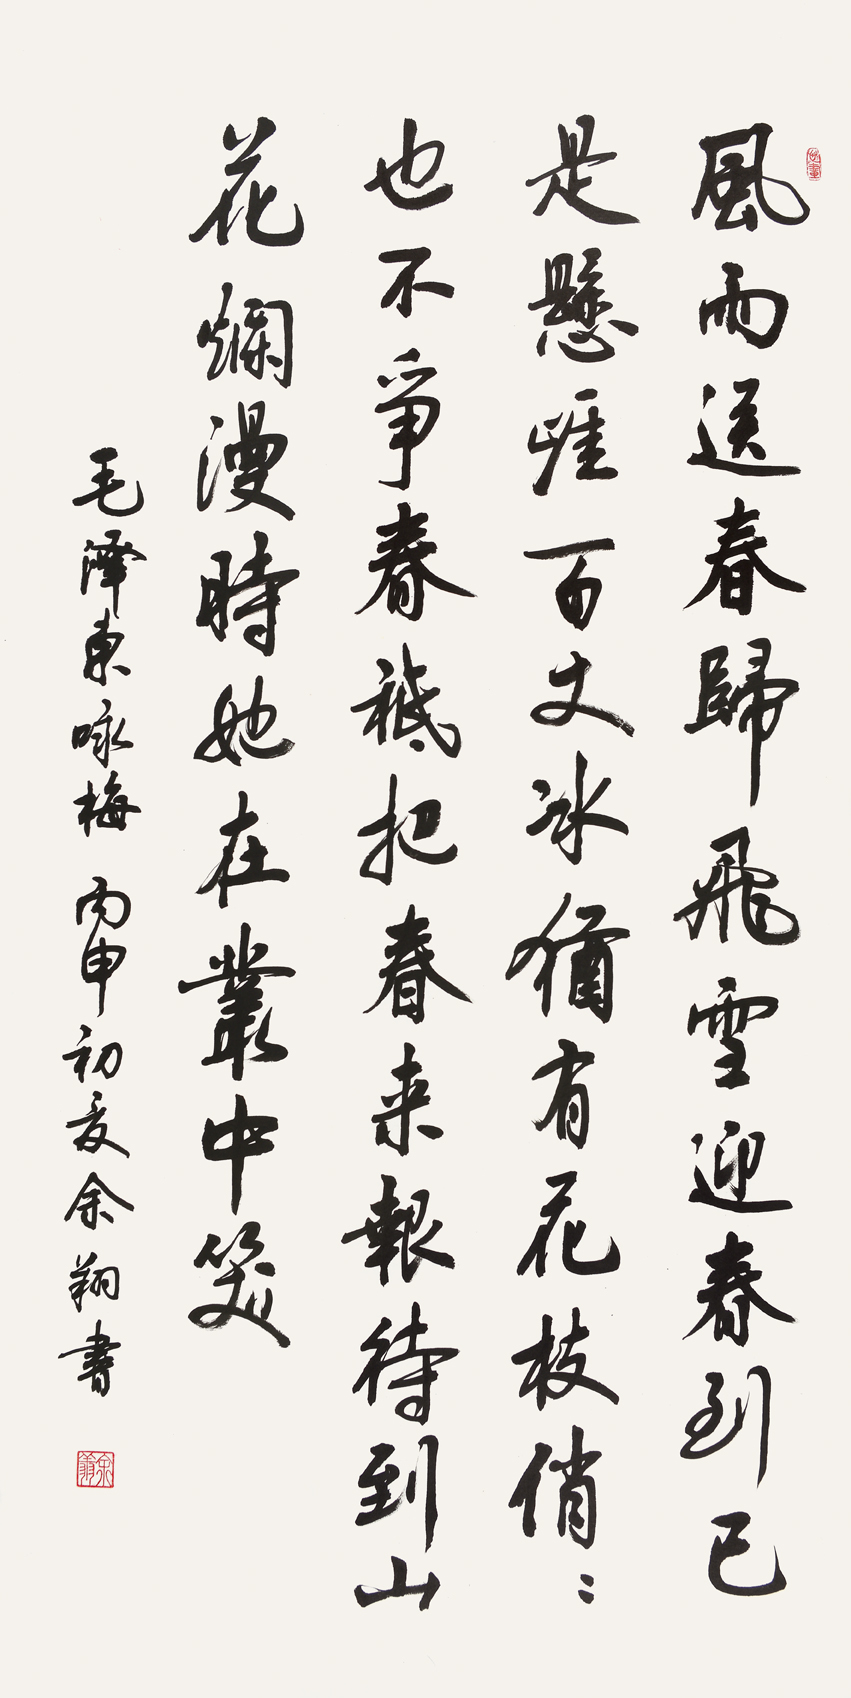 風雨送春歸飛雪迎春到已
是懸崖百丈冰猶有花枝俏〻
也不爭春祗把春来報待到山
花爛漫時她在叢中笑
毛澤東咏梅 丙申初夏余翔書
余翔